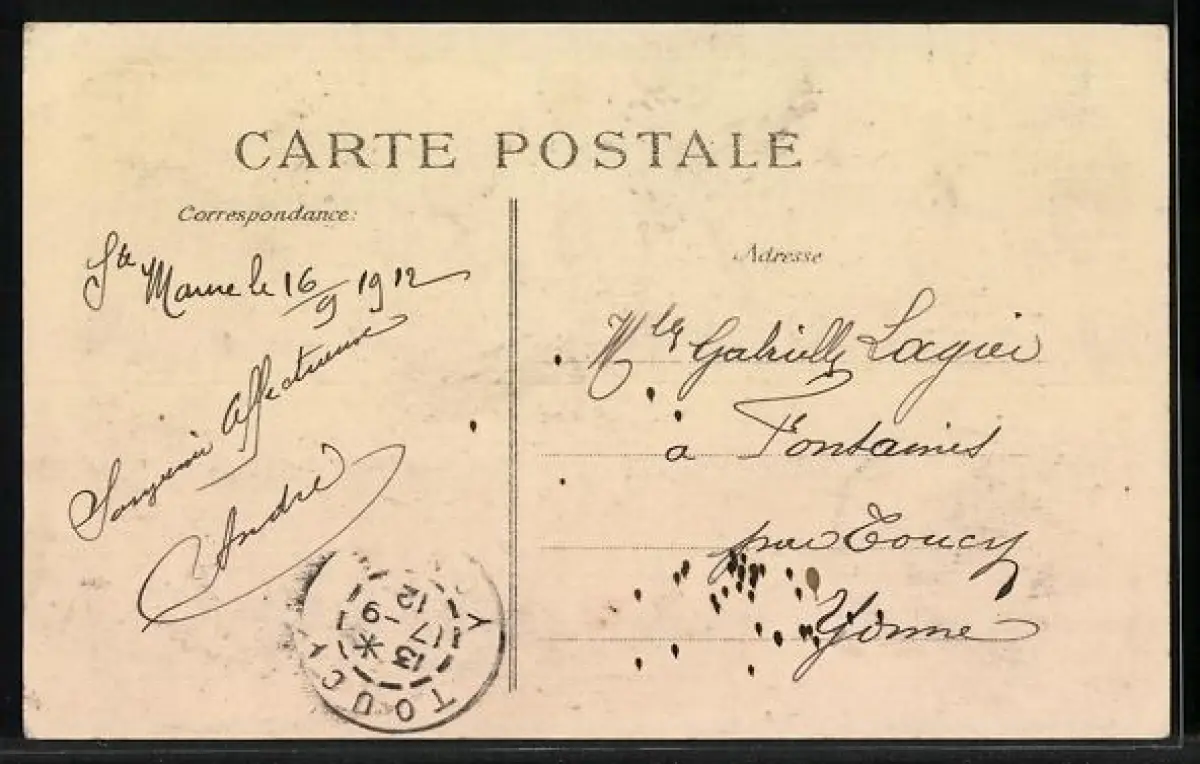 CARTE POSTALE
Correspondance:
Ste Marne le 16/9 1912
Souvenir Affectueux
André
Adresse
Mlle Gabrielle Lagier
a Fontaines
par Toucy
Yonne
TOUCY
13 *
17 - 9
12
Y